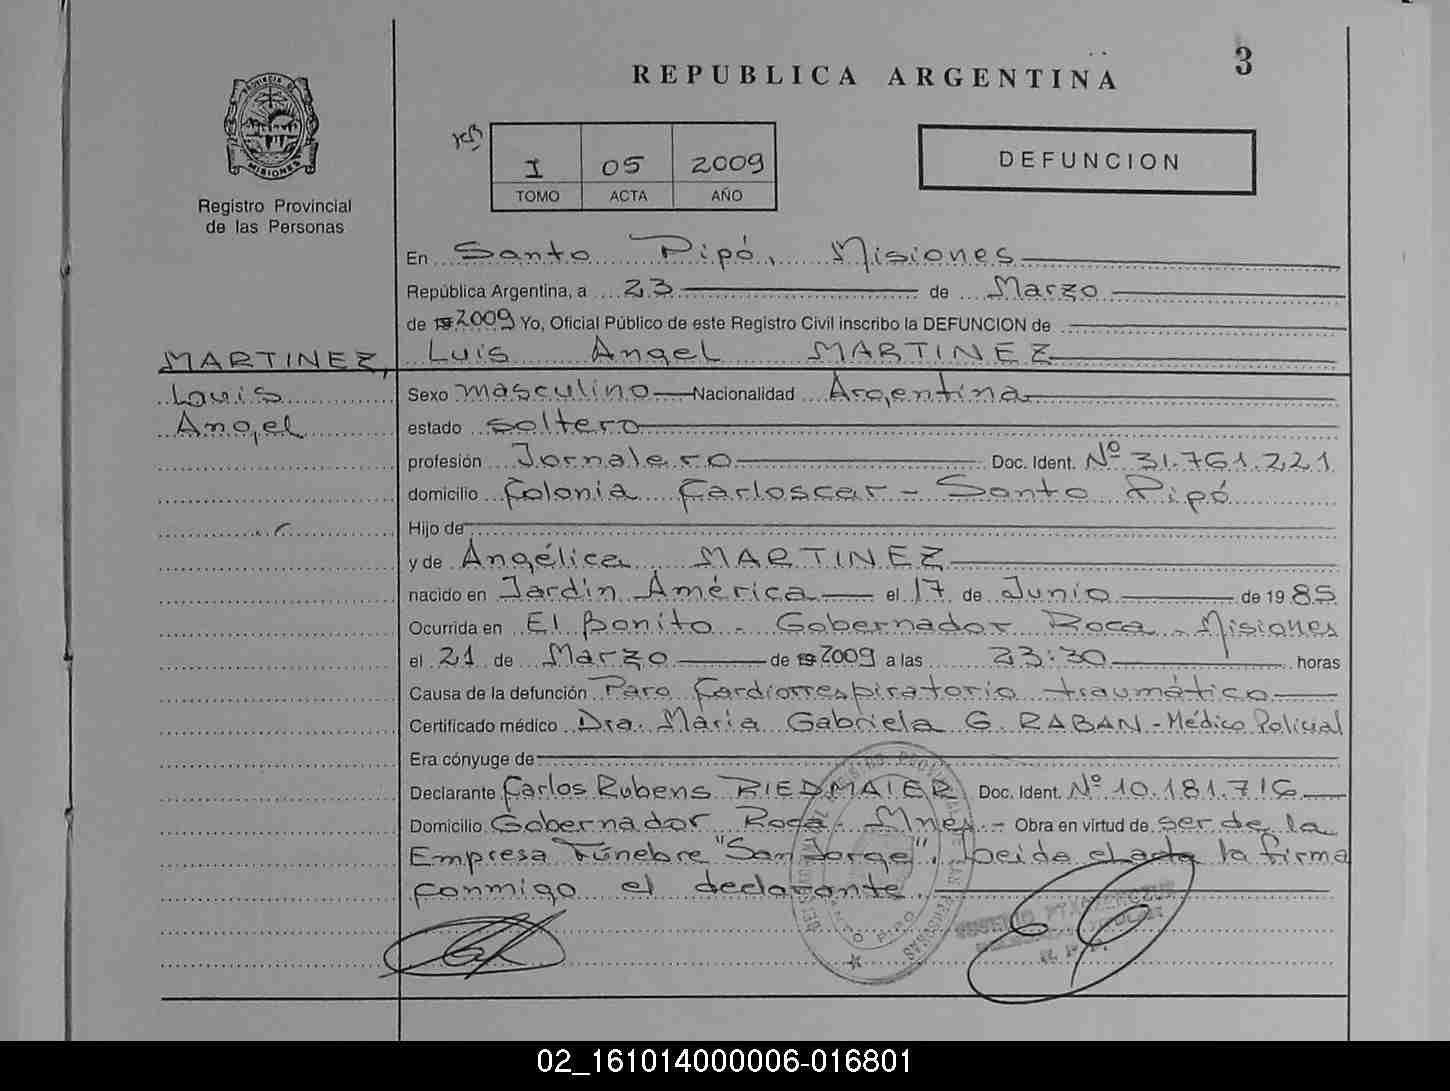 REPUBLICA ARGENTINA
3
PROVINCIA D MISIONES
Registro Provincial
de las Personas
I 05 2009
TOMO ACTA AÑO
DEFUNCION
En Santo Pipó, Misiones
República Argentina, a 23 de Marzo
de 19 2009 Yo, Oficial Público de este Registro Civil inscribo la DEFUNCION de
MARTINEZ, Luis Angel MARTINEZ
Louis Sexo masculino Nacionalidad Argentina
Angel estado soltero
profesión Jornalero Doc. Ident. Nº 31.761.221
domicilio Colonia Carloscar - Santo Pipó
Hijo de
y de Angélica MARTINEZ
nacido en Jardín América el 17 de Junio de 19 85
Ocurrida en El Bonito - Gobernador Roca - Misiones
el 21 de Marzo de 19 2009 a las 23:30 horas
Causa de la defunción Paro Cardiorrespiratorio traumático
Certificado médico Dra. María Gabriela G. RABAN - Médico Policial
Era cónyuge de
Declarante Carlos Rubens RIEDMAIER Doc. Ident. Nº 10.181.716
Domicilio Gobernador Roca - Mnes - Obra en virtud de ser de la
Empresa Fúnebre "San Jorge". Leida el acta la firma
conmigo el declarante.
SANTO PIPO
02_161014000006-016801